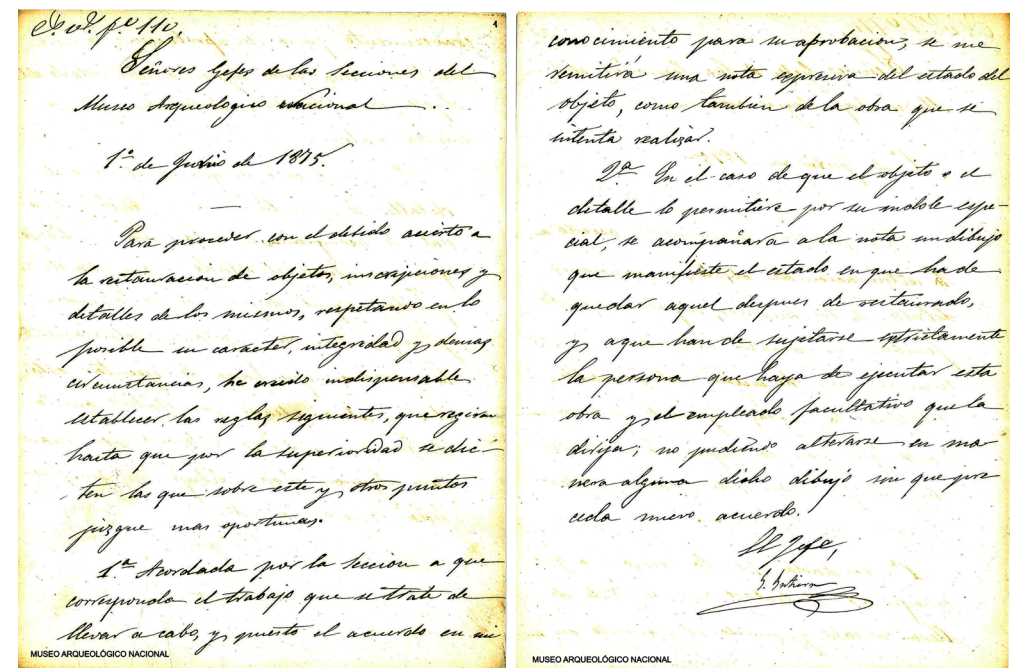 fº 110.
Señores Gefes de las Secciones del
Museo Arqueologico Nacional
1º de Junio de 1875.
Para proceder con el debido acierto a
la restauracion de objetos, inscripciones y
detalles de los mismos, respetando en lo
posible su caracter, integridad y demas
circunstancias, he creido indispensable
establecer las reglas siguientes, que regiran
hasta que por la superioridad se dic-
ten las que sobre este y otros puntos
juzgue mas oportunas.
1ª Acordada por la Seccion a que
corresponda el trabajo que se trate de
llevar a cabo, y puesto el acuerdo en mi
MUSEO ARQUEOLÓGICO NACIONAL
conocimiento para su aprobacion, se me
remitirá una nota expresiva del estado del
objeto, como tambien de la obra que se
intenta realizar.
2ª En el caso de que el objeto o el
detalle lo permitiere por su indole espe-
cial, se acompañara a la nota un dibujo
que manifieste el estado en que ha de
quedar aquel despues de restaurado,
y a que han de sujetarse estrictamente
la persona que haya de ejecutar esta
obra y el empleado facultativo que la
dirija; no pudiendo alterarse en ma-
nera alguna dicho dibujo sin que pre
ceda nuevo acuerdo.
El Jefe,
MUSEO ARQUEOLÓGICO NACIONAL